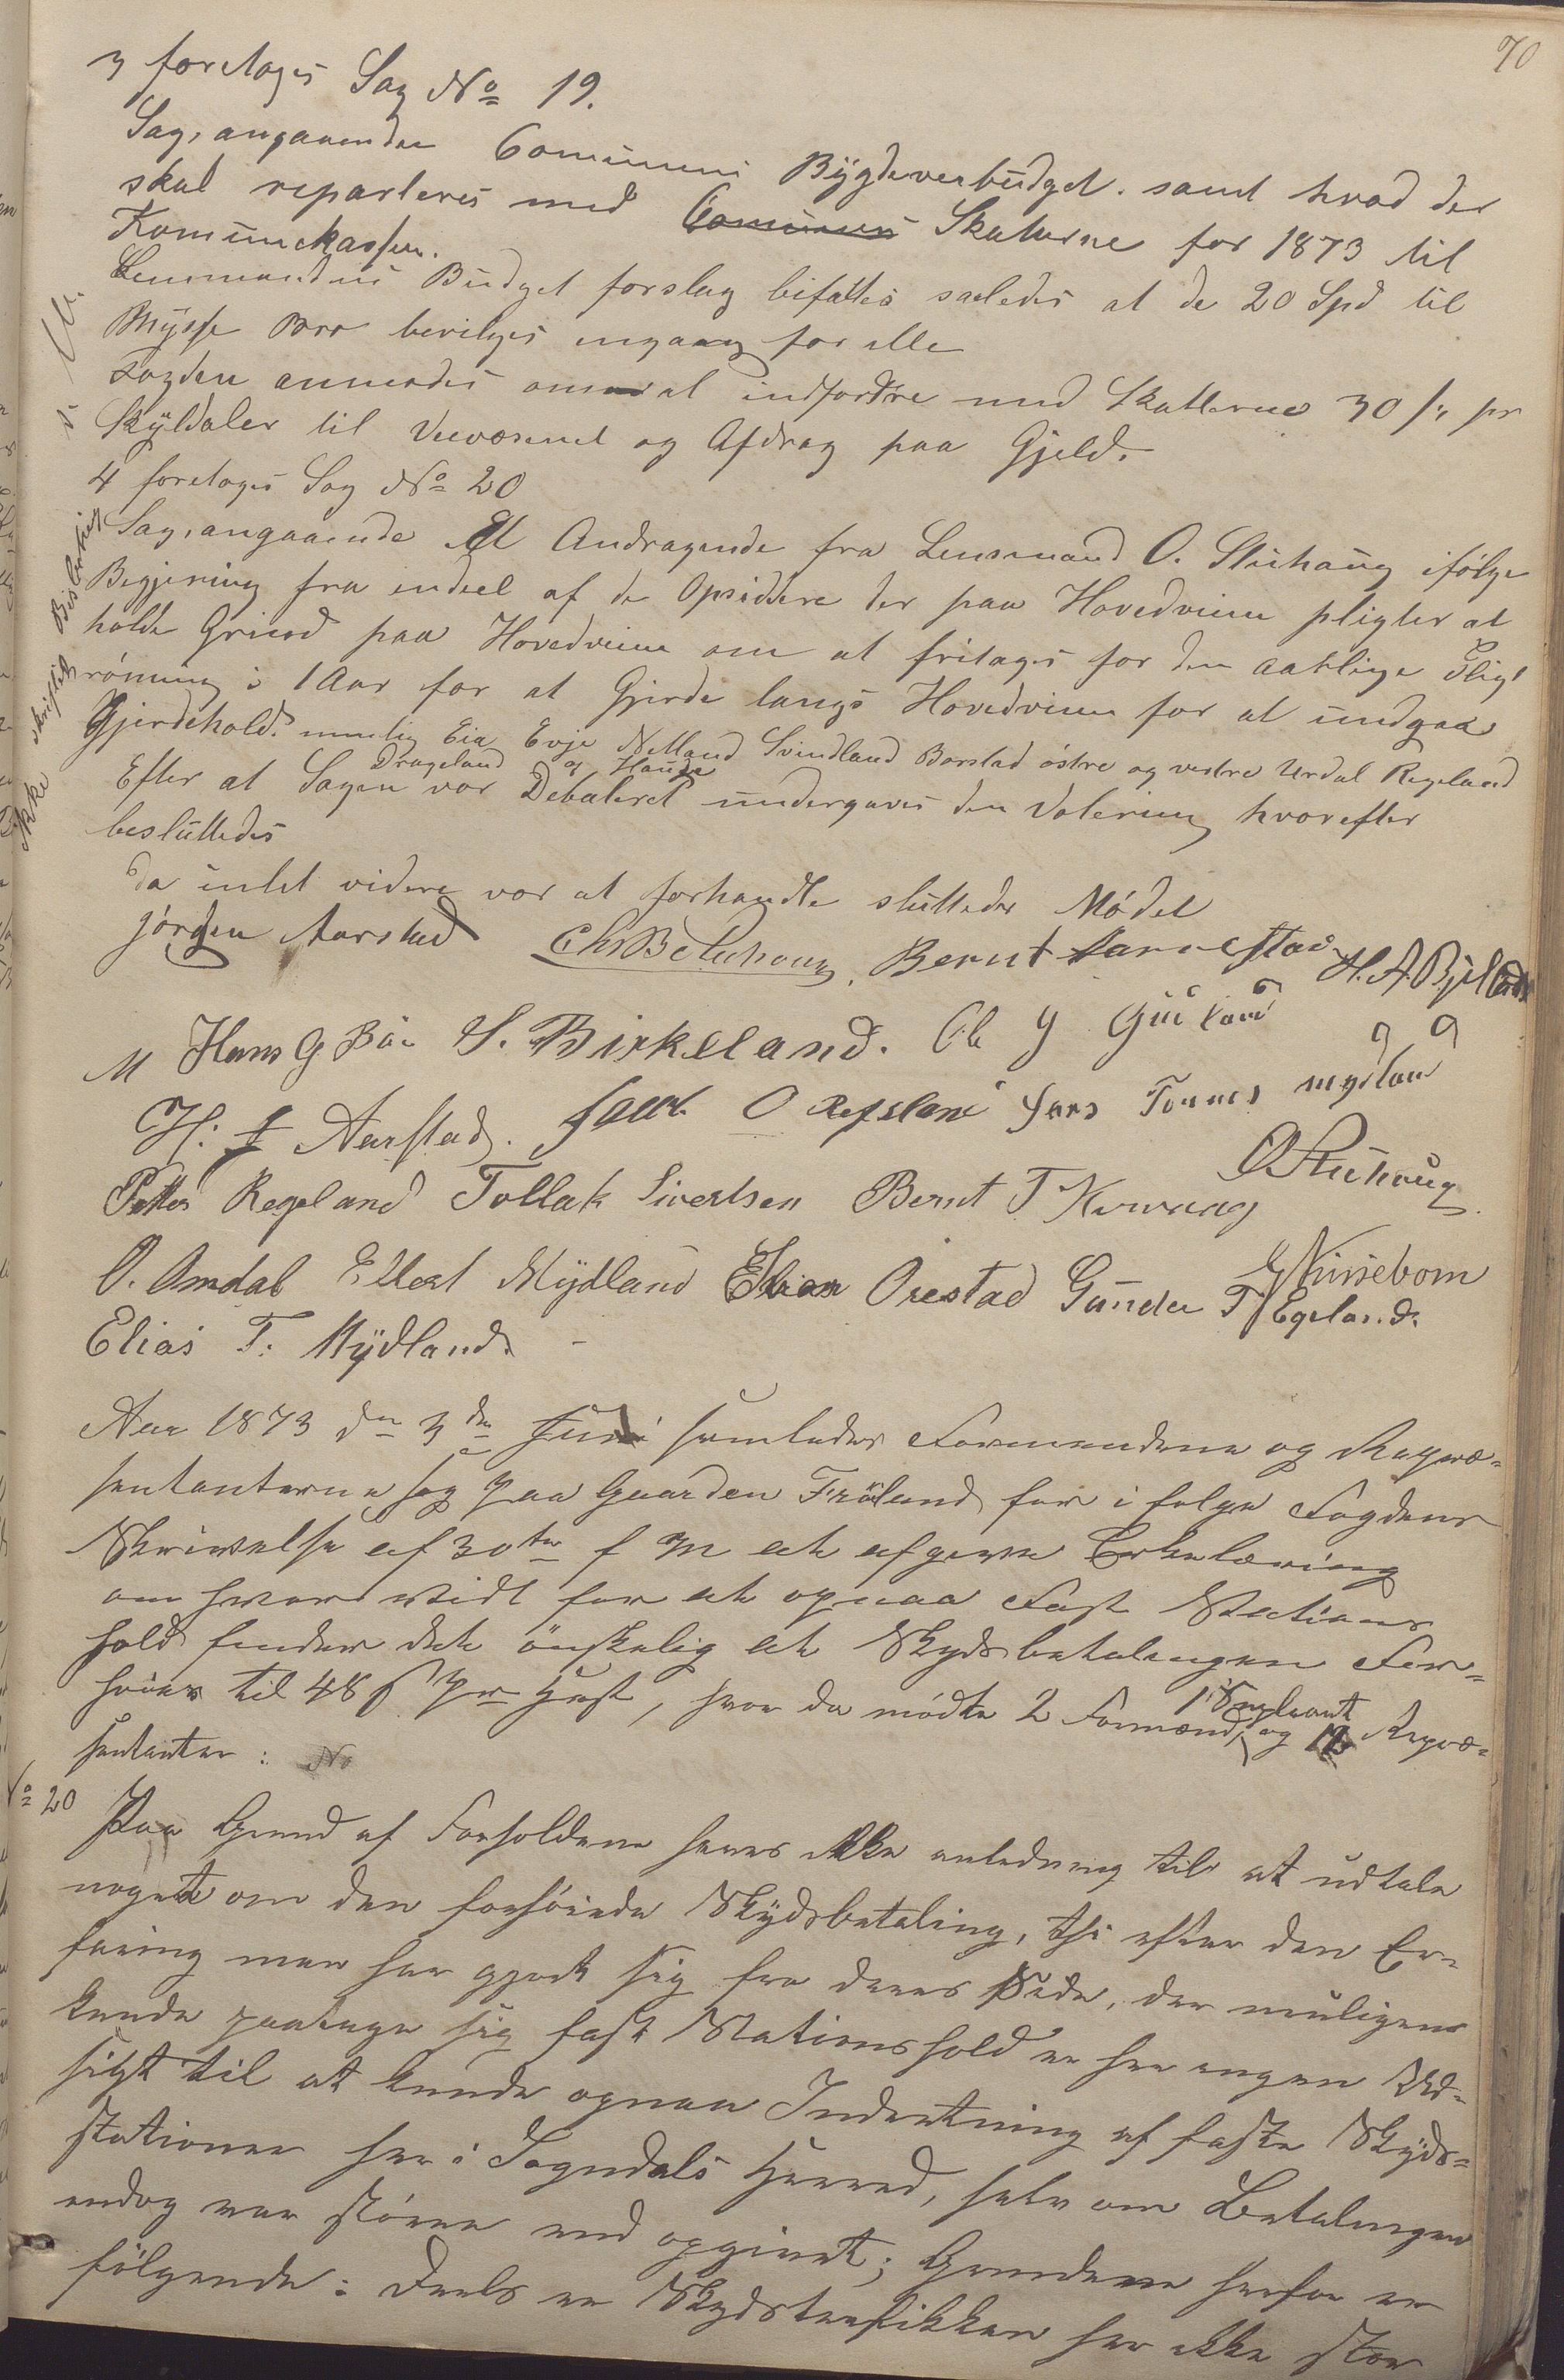 70
3 foretages Sag No 19.
Sag, angaaende Comunens Bygdeveibudget. samt hvad der
skal reparteres med Comunens Skatterne for 1873 til
Komunekassen.
Lensmandens Budget forslag bifaltes saaledes at de 20 Spd til
Mysse Bro bevilges engang for alle
Fogden anmodes om at indfordre med Skatterne 30 s pr
Skyldaler til Veivæsenet og Afdrag paa Gjeld.
4 foretages Sag No 20
Sag, angaaende Et Andragende fra Lensmand O. Stuhaug ifølge
Begjering fra endeel af de Opsiddere der paa Hovedveien pligter at
holde Grind paa Hovedveien om at fritages for den aarlige Pligt
rømning i 1 Aar for at Gjerde langs Hovedveien for at undgaa
Gjerdehold. nemlig Eia Evje Netland Svindland Barstad østre og vestre Urdal Regeland
Drageland og Hauge
Efter at Sagen var Debateret undergaves den Votering hvorefter
besluttedes
ikke skriftlig Beslutning
da intet videre var at forhandle sluttedes Mødet
Jørgen Aarstad Chr B Stuhaug, Bernt Aarrestad H. A. Bjelland
M Hans G Bue S. Birkeland. Ole G Gueland
H: J Aarstad. Jacob O Refsland Lars Tønnes Mydland
O Stuhaug
Petter Regeland Tollak Sivertsen Bernt T
O. Omdal Ellert Mydland Elias Orrestad Gunder T Egeland.
G Nissebom
Elias T. Mydland.
Aar 1873 den 3den Juni samledes Formændene og Repræ=
sentanterne sig paa Gaarden Frøland for i følge Fogdens
Skrivelse af 30te f M at afgive Erklæring
om hvorvidt for at opnaa Fast Stations
hold findes det ønskelig at Skydsbetalingen For=
høies til 48 s pr Hest, hvor da mødte 2 Formænd, 1 Supleant og 12 Repræ=
sentanter: No
No 20
Paa Grund af Forholdene haves ikke anledning til at udtale
noget om den forhøiede Skydsbetaling, thi efter den Er=
faring man har gjort sig fra deres Side, der muligens
kunde paatage sig fast Stationshold er her ingen Ud=
sigt til at kunde opnaa Indretning af faste Skyds=
stationer her i Sogndals Herred, selv om Betalingen
endog var større end opgivet; Grundene herfor er
følgende: Deels er Skydstrafikken her ikke stor